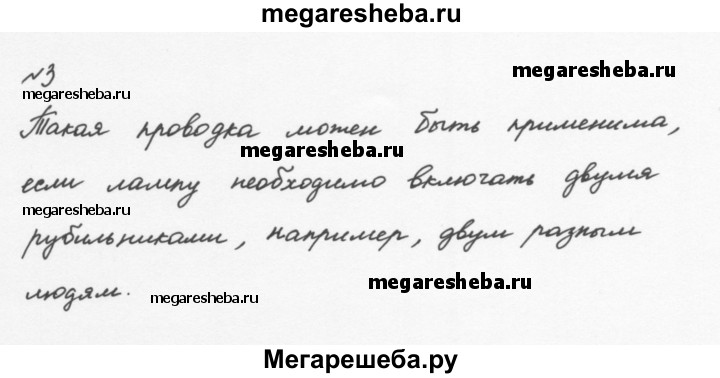 megaresheba.ru
№3
megaresheba.ru
megaresheba.ru
Такая проводка может быть применима,
megaresheba.ru
если лампу необходимо включать двумя
megaresheba.ru
рубильниками, например, двум разным
megaresheba.ru
людям.
megaresheba.ru
Мегарешеба.ру